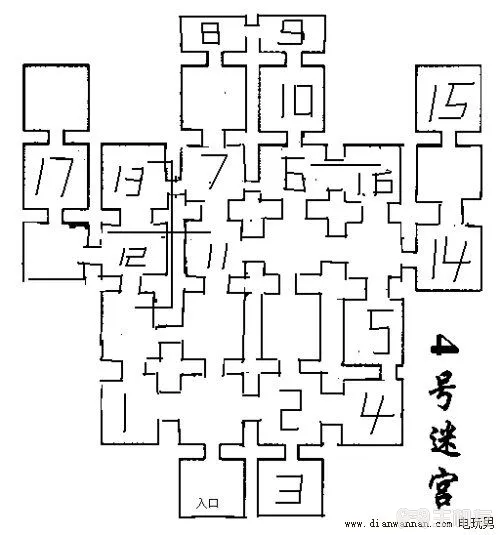 8 9
10 15
17 13 7 6 16
12 11 14
5
1 2 4
3
入口
4号迷宫
www.dianwannan.com 电玩男